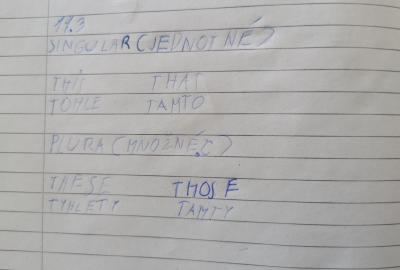 19.3
SINGULAR (JEDNOTNÉ)
THIS THAT
TOHLE TAMTO
PLURA (MNOŽNÉČ)
THESE THOSE
TYHLETY TAMTY